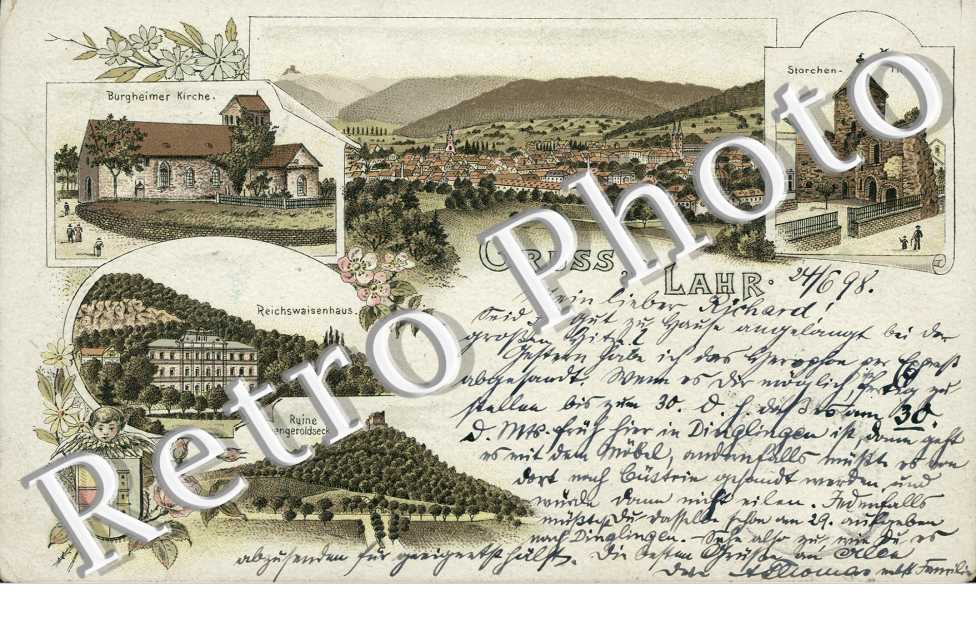 Burgheimer Kirche.
Storchen-
Reichswaisenhaus.
Ruine
Hohengeroldseck
Gruss
Lahr.
24/6 98.
Mein lieber Richard!
Seid gut zu Hause angelangt bei der
großen Hitze?
Gestern habe ich das per Expreß
abgesandt. Wenn es Dir möglich fertig zu
stellen bis zum 30. d. M. daß es am 30.
d. Mts. früh hier in Dinglingen ist, dann geht
es mit dem Möbel, andernfalls müßte es von
dort nach Cüstrin gesandt werden und
würde dann nicht eilen. Jedenfalls
müßtest Du dasselbe schon am 29. aufgeben
nach Dinglingen. - Sehe also zu wie Du es
abzusenden für geeignetst hälst. Die besten Grüße an Alle
Dein Thomas nebst Familie
Retro Photo